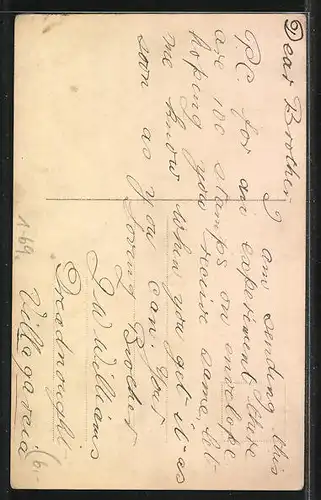 Dear Brother
I am sending this
P.C. for an experiment, there
are 100 stamps on envelope
hoping you receive same. let
me know when you get it as
soon as you can. your
Loving Brother
J W Williams
Dreadnought
Villagarcia
1.69